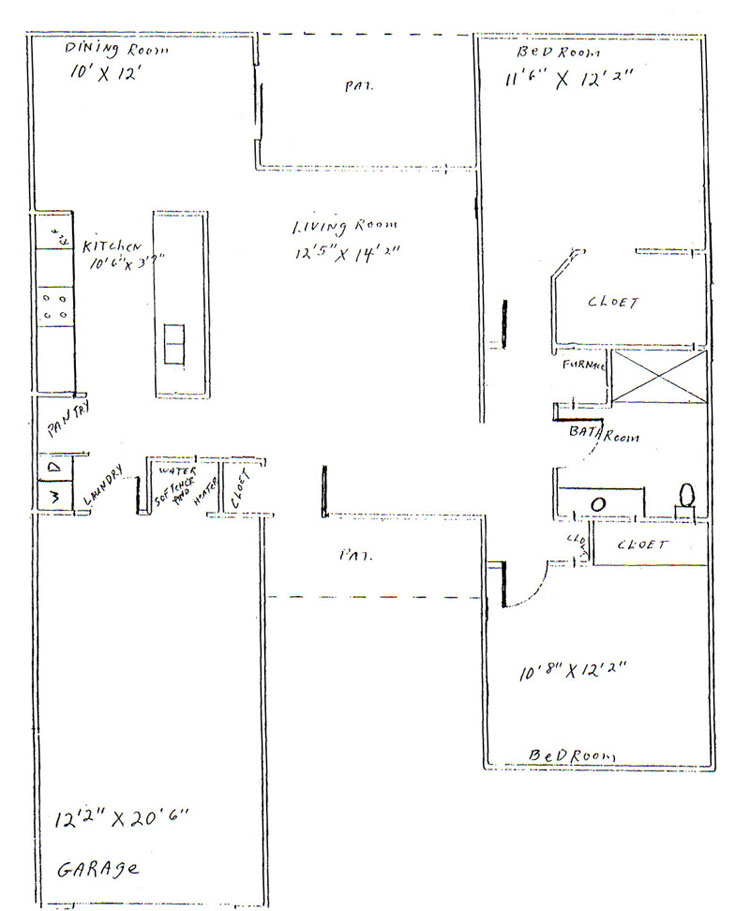 DINING ROOM
10' X 12'
PAT.
BED ROOM
11'6" X 12'2"
LIVING ROOM
12'5" X 14'2"
KITCHEN
CLOET
FURNACE
PANTRY
BATH ROOM
D
W
LAUNDRY
WATER
SOFTENCE
AND
HEATER
CLOET
PAT.
CLOET
10'8" X 12'2"
BED ROOM
12'2" X 20'6"
GARAGE